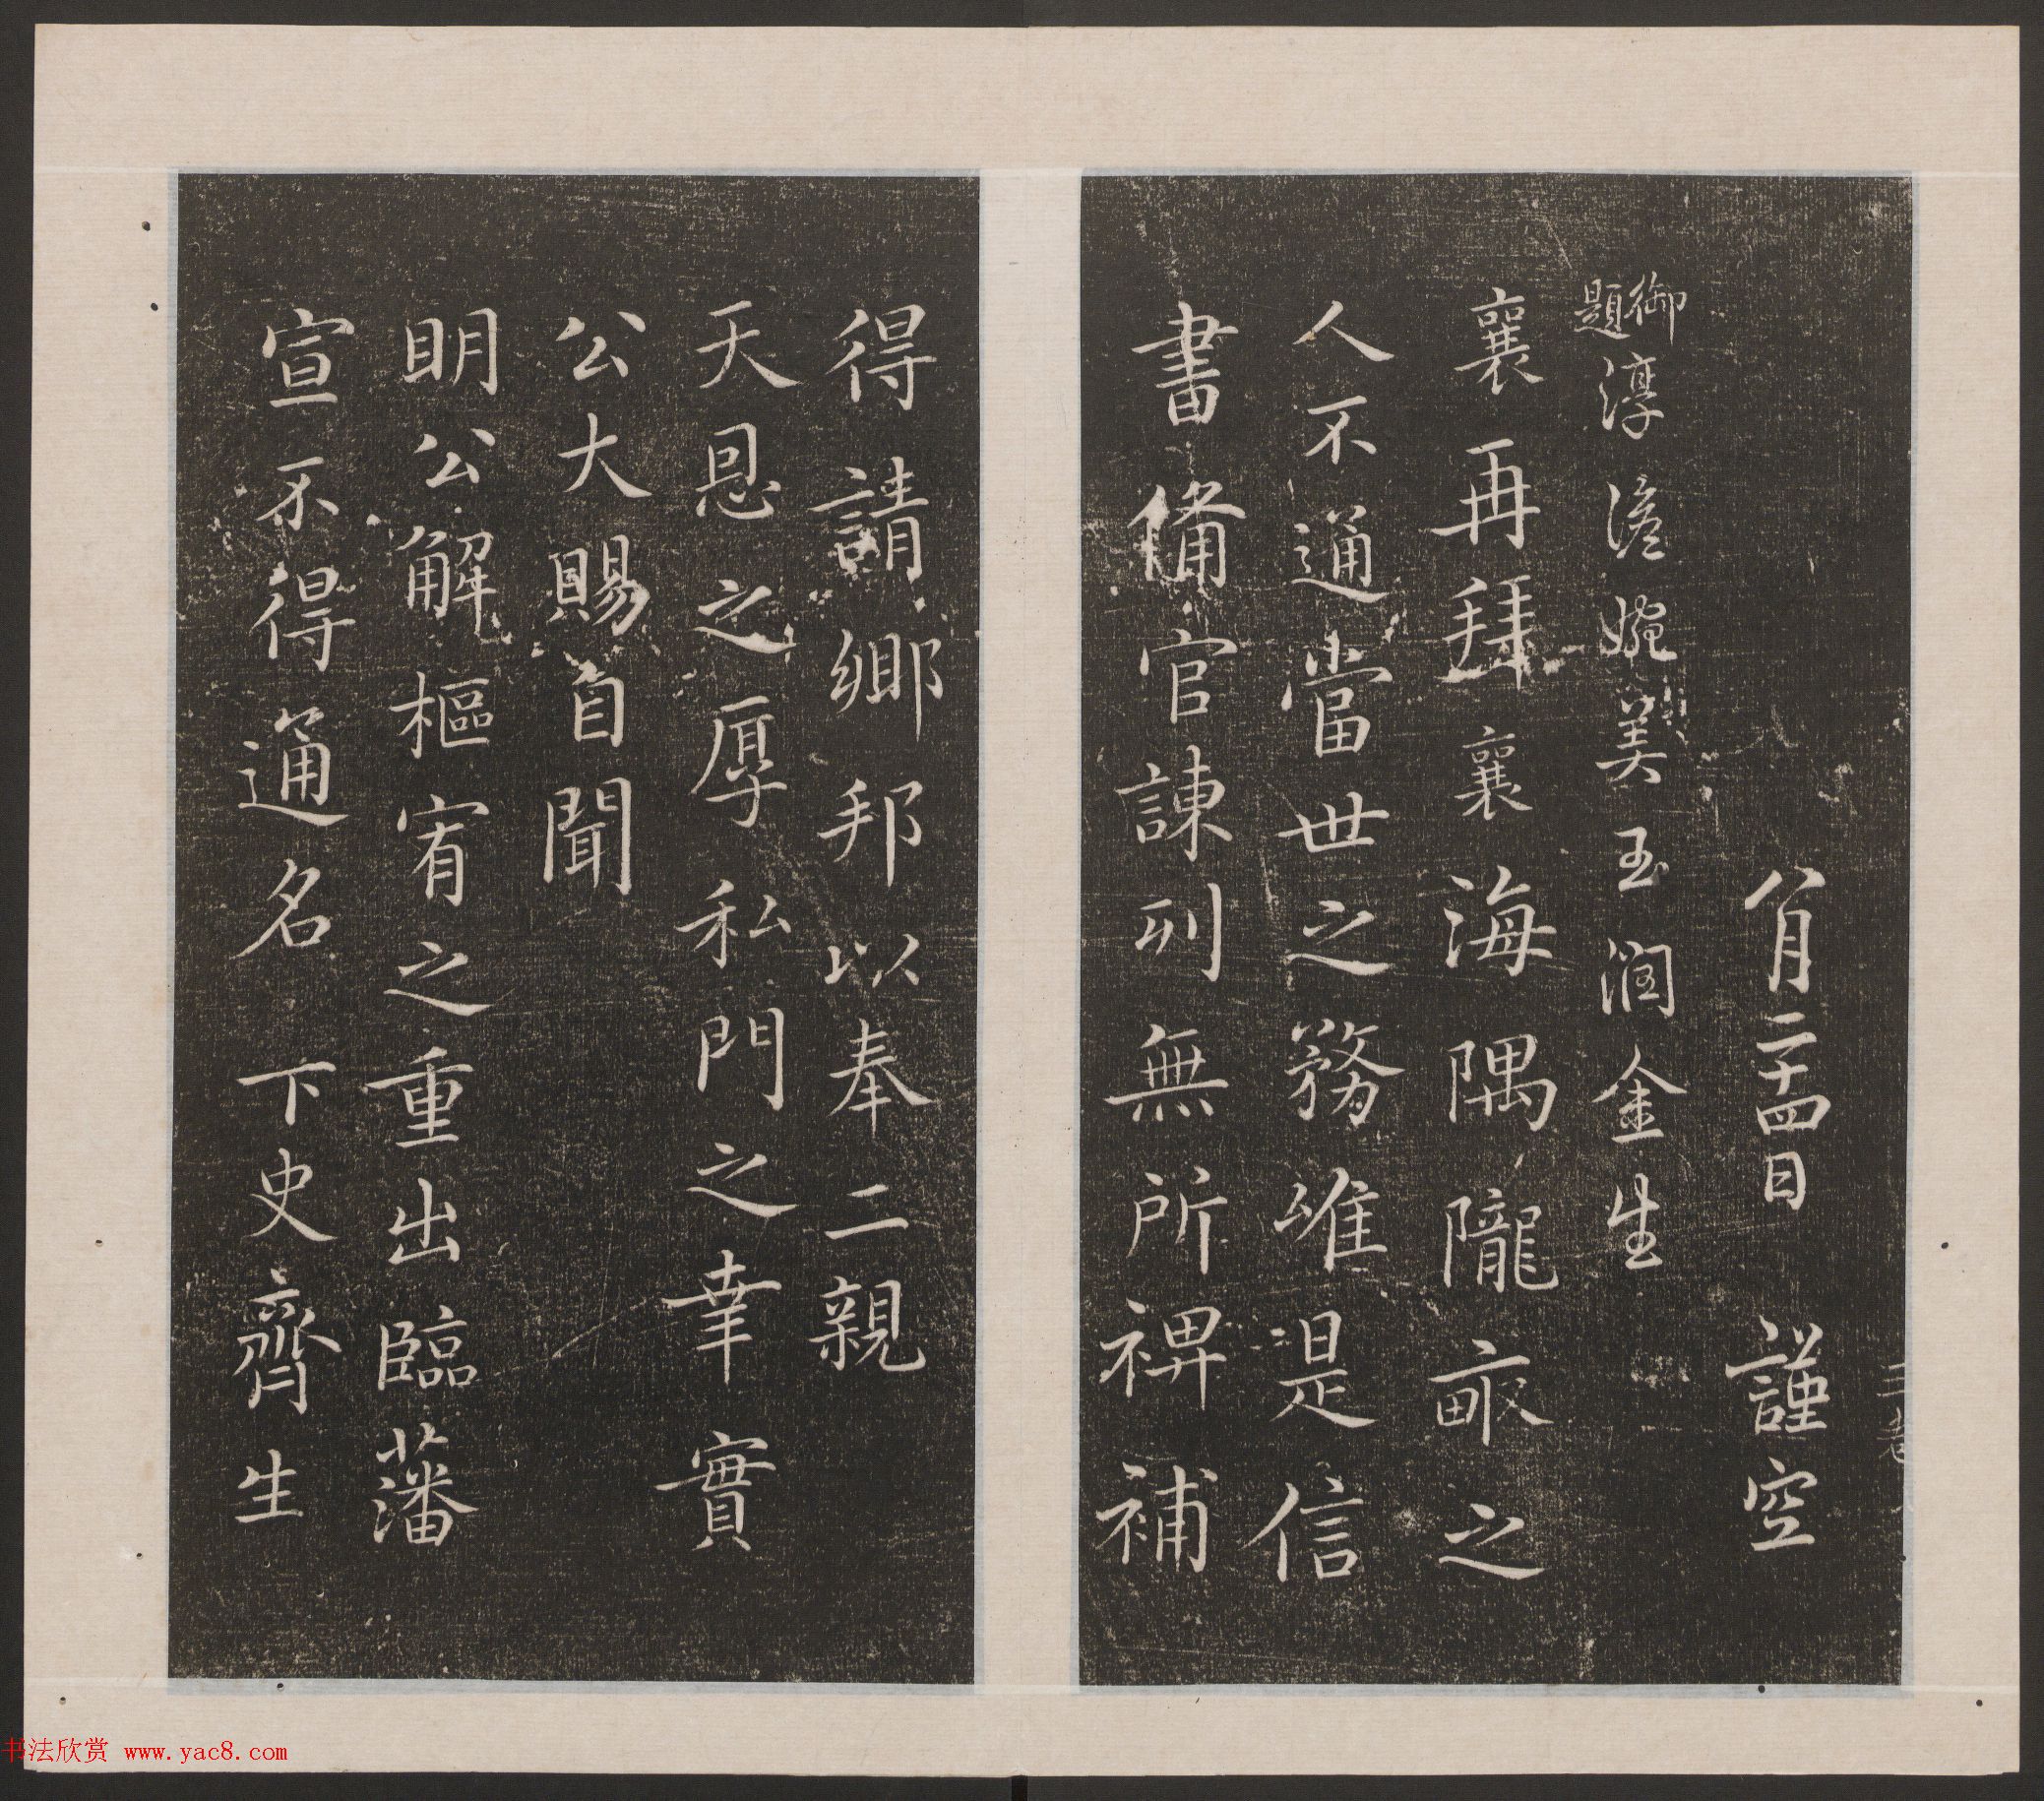 八月二十四日 謹空
御題淳澹婉美玉潤金生
襄再拜襄海隅隴畝之
人不通當世之務唯是信
書備官諫列無所裨補
得請鄉邦以奉二親
天恩之厚私門之幸實
公大賜自聞
明公解樞宥之重出臨藩
宣不得通名下史齊生
书法欣赏 www.yac8.com